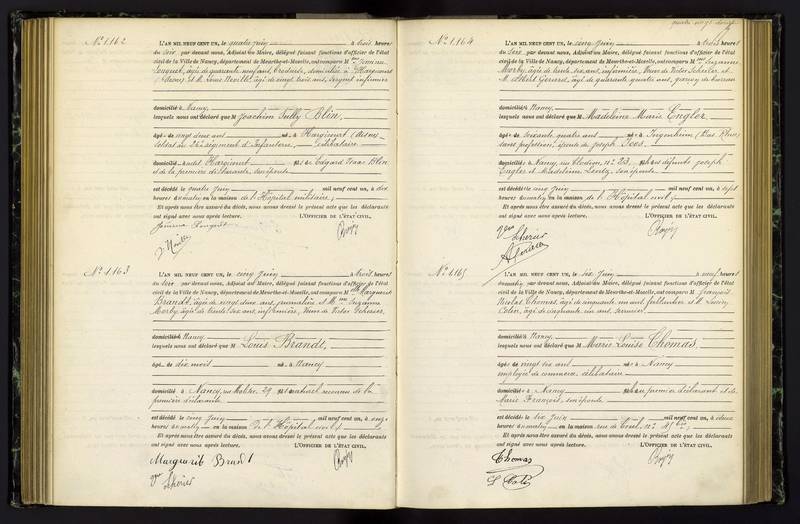 quatre vingt douze
N° 1.162
L'AN MIL NEUF CENT UN, le quatre juin à trois heures
du soir par devant nous, Adjoint au Maire, délégué faisant fonctions d'officier de l'état
civil de la Ville de Nancy, département de Meurthe-et-Moselle, ont comparu M
âgée de quarante neuf ans, domiciliée à Hargicourt
(Aisne) et M. âgé de vingt trois ans, sergent infirmier
domicilié à Nancy,
lesquels nous ont déclaré que M Joachim Tully Blin,
âgé de vingt deux ans né à Hargicourt (Aisne)
soldat au 26e régiment d'Infanterie, célibataire
domicilié audit Hargicourt fils de Edgard Isaac Blin
et de la première déclarante, son épouse
est décédé le quatre juin mil neuf cent un, à dix
heures du matin en la maison de l'Hôpital militaire;
Et après nous être assuré du décès, nous avons dressé le présent acte que les déclarants
ont signé avec nous après lecture. L'OFFICIER DE L'ÉTAT CIVIL,
N° 1.163
L'AN MIL NEUF CENT UN, le cinq juin à trois heures
du soir par devant nous, Adjoint au Maire, délégué faisant fonctions d'officier de l'état
civil de la Ville de Nancy, département de Meurthe-et-Moselle, ont comparu Melle Marguerite
Brandt, âgée de vingt deux ans, journalière et Mme Suzanne
Morby, âgée de trente six ans, infirmière, Veuve de Victor Scherier,
domiciliés à Nancy
lesquels nous ont déclaré que M Louis Brandt,
âgé de dix mois né à Nancy
domicilié à Nancy, rue 29 fils naturel reconnu de la
première déclarante
est décédé le cinq juin mil neuf cent un, à onze
heures du matin en la maison de l'Hôpital civil;
Et après nous être assuré du décès, nous avons dressé le présent acte que les déclarants
ont signé avec nous après lecture. L'OFFICIER DE L'ÉTAT CIVIL,
Marguerit Brandt
Vve
Scherier
N° 1.164
L'AN MIL NEUF CENT UN, le cinq juin à trois heures
du soir par devant nous, Adjoint au Maire, délégué faisant fonctions d'officier de l'état
civil de la Ville de Nancy, département de Meurthe-et-Moselle, ont comparu Mme Suzanne
Morby, âgée de trente six ans, infirmière, Veuve de Victor Scherier et
M. Gérard, âgé de quarante quatre ans, garçon de bureau
domiciliés à Nancy
lesquels nous ont déclaré que M Madeleine Marie Engler
âgée de soixante quatre ans née à Ingenheim (Bas Rhin)
sans profession, épouse de Joseph
domiciliée à Nancy, rue Clodion, n° 23, fille des défunts Joseph
Engler et Madeleine Lentz, son épouse
est décédée le cinq juin mil neuf cent un, à sept
heures du matin en la maison de l'Hôpital civil;
Et après nous être assuré du décès, nous avons dressé le présent acte que les déclarants
ont signé avec nous après lecture. L'OFFICIER DE L'ÉTAT CIVIL,
Vve
Scherier
N° 1.165
L'AN MIL NEUF CENT UN, le six juin à neuf heures
du matin par devant nous, Adjoint au Maire, délégué faisant fonctions d'officier de l'état
civil de la Ville de Nancy, département de Meurthe-et-Moselle, ont comparu M François
Nicolas Thomas, âgé de cinquante un ans, ferblantier et M. Lucien
Colin, âgé de cinquante un ans,
domiciliés à Nancy
lesquels nous ont déclaré que M Marie Louise Thomas,
âgée de vingt six ans née à Nancy
employée de commerce, célibataire
domiciliée à Nancy fille du premier déclarant et de
Marie François, son épouse
est décédée le six juin mil neuf cent un, à deux
heures du matin en la maison rue de Toul, n° 45 bis;
Et après nous être assuré du décès, nous avons dressé le présent acte que les déclarants
ont signé avec nous après lecture. L'OFFICIER DE L'ÉTAT CIVIL,
Thomas